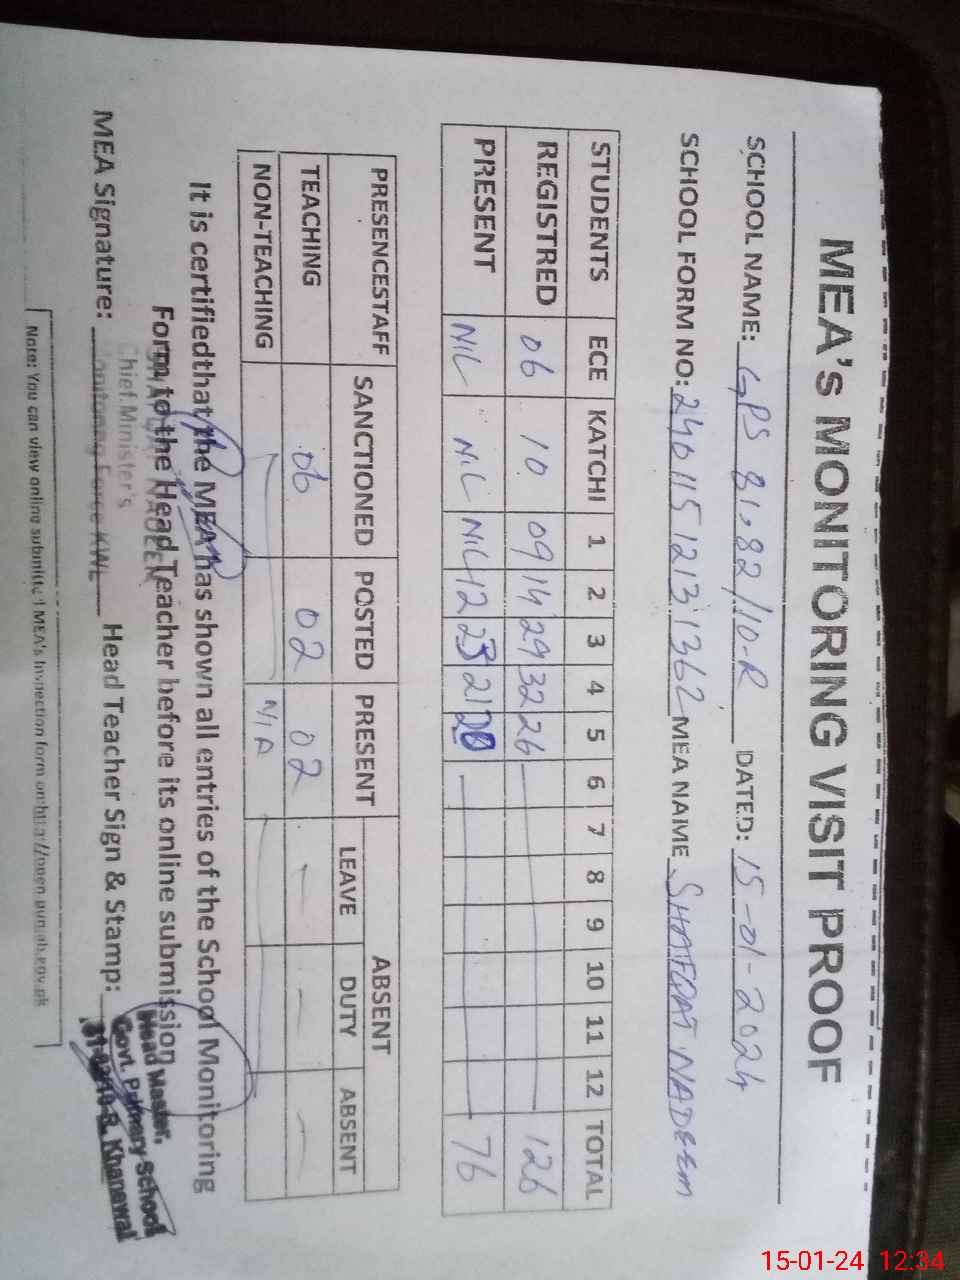 MEA's MONITORING VISIT PROOF
SCHOOL NAME: GPS 81,82/10-R DATED: 15-01-2024
SCHOOL FORM NO: 2401151213 1362 MEA NAME SHAFQAT NADEEM
STUDENTS ECE KATCHI 1 2 3 4 5 6 7 8 9 10 11 12 TOTAL
REGISTRED 06 10 09 14 29 32 26 126
PRESENT NIL NIL NIL 12 23 21 20 76
PRESENCESTAFF SANCTIONED POSTED PRESENT ABSENT
LEAVE DUTY ABSENT
TEACHING 06 02 02 — — —
NON-TEACHING N/A
It is certifiedthat the MEA has shown all entries of the School Monitoring
Form to the Head Teacher before its online submission
Chief Minister's
Monitoring Force KWL
MEA Signature: Head Teacher Sign & Stamp:
Head Master,
Govt. Primary School
Khanewal
Note: You can view online submitted MEA's Inspection form on:http://open.punjab.gov.pk
15-01-24 12:34